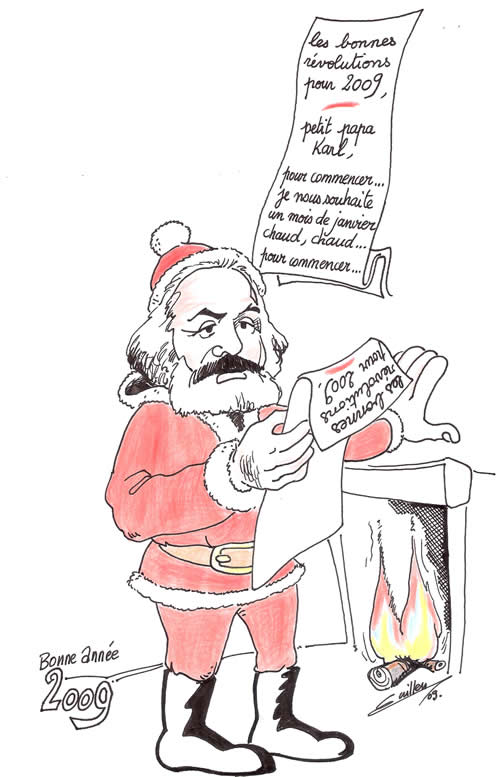 les bonnes
révolutions
pour 2009,
petit papa
Karl,
pour commencer...
je nous souhaite
un mois de janvier
chaud, chaud...
pour commencer...
les bonnes
révolutions
pour 2009,
Bonne année
2009
09.